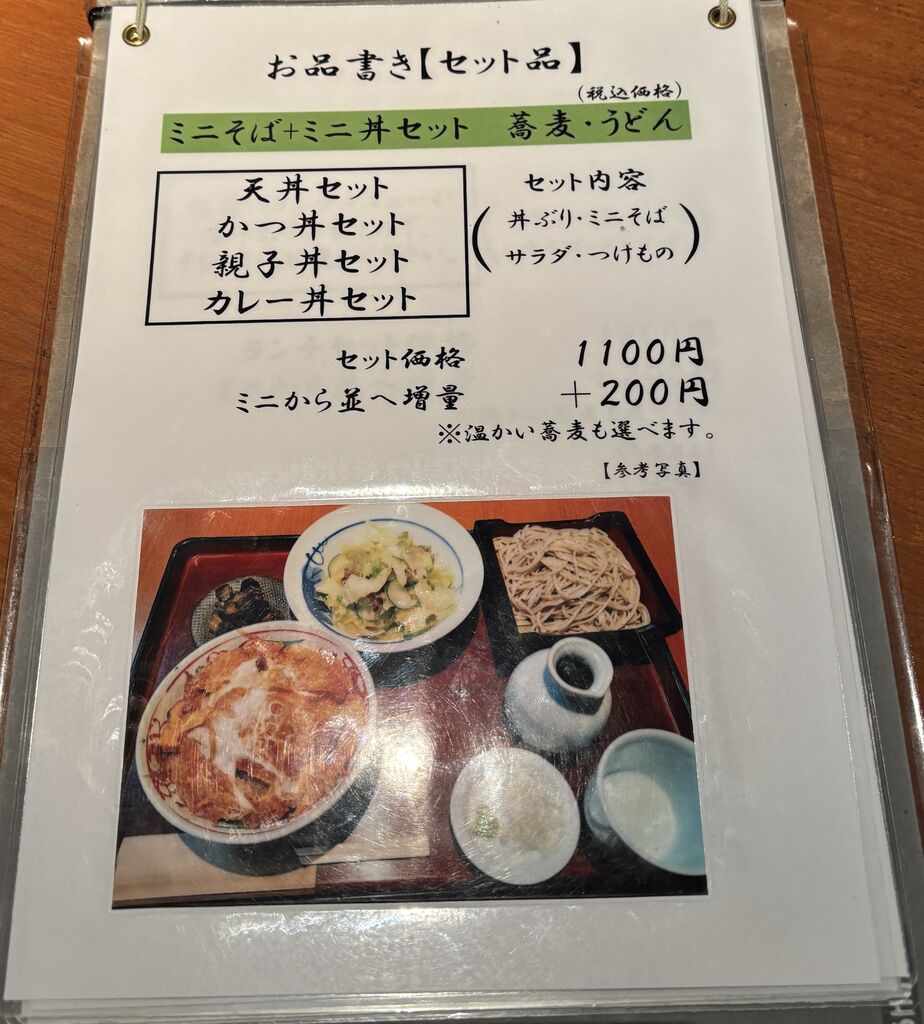 お品書き【セット品】
(税込価格)
ミニそば+ミニ丼セット 蕎麦・うどん
天丼セット
かつ丼セット
親子丼セット
カレー丼セット
セット内容
(丼ぶり・ミニそば
サラダ・つけもの)
セット価格 1100円
ミニから並へ増量 +200円
※温かい蕎麦も選べます。
【参考写真】